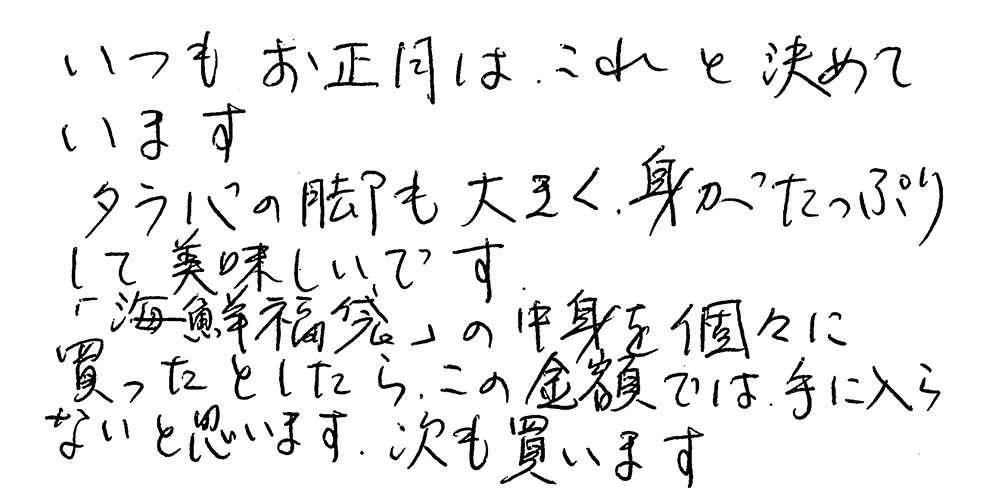 いつもお正月は、これと決めて
います
タラバの脚も大きく、身がたっぷり
して美味しいです
「海鮮福袋」の中身を個々に
買ったとしたら、この金額では、手に入ら
ないと思います、次も買います